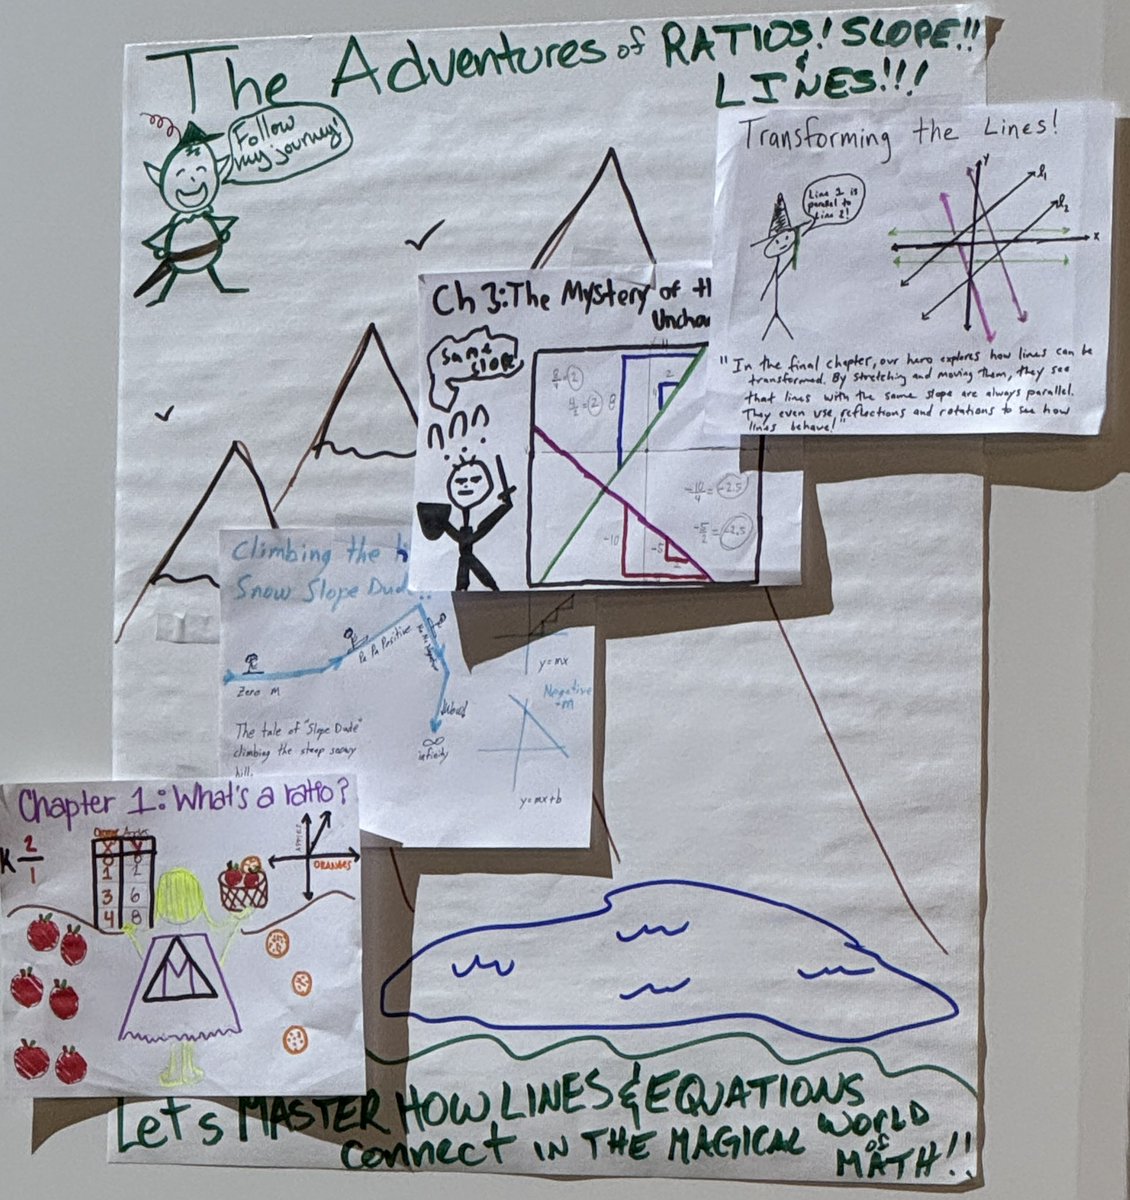 The Adventures of RATIOS! SLOPE!!
& LINES!!!
Follow
my journey!
Transforming the Lines!
Line 1 is
parallel to
Line 2!
y
l1
l2
x
"In the final chapter, our hero explores how lines can be
transformed. By stretching and moving them, they see
that lines with the same slope are always parallel.
They even use reflections and rotations to see how
lines behave!"
Ch 3: The Mystery of th
Uncha
Same
slope
8/4 = 2
4/2 = 2
8
2
-10/4 = -2.5
-5/2 = -2.5
-10
-5
2
Climbing the h
Snow Slope Dude
Zero M
Pu Pu Positive
∞
infinity
The tale of "Slope Dude"
climbing the steep snowy
hill.
y=mx
Negative
-m
y=mx+b
Chapter 1: What's a ratio?
K 2/1
APPLES
ORANGES
1 2
3 6
4 8
M
Let's MASTER HOW LINES & EQUATIONS
Connect IN THE MAGICAL WORLD
of
MATH!!